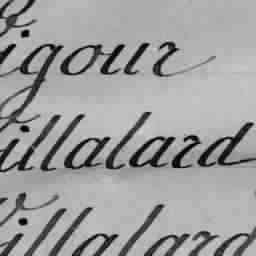 igour
illalard
illalard